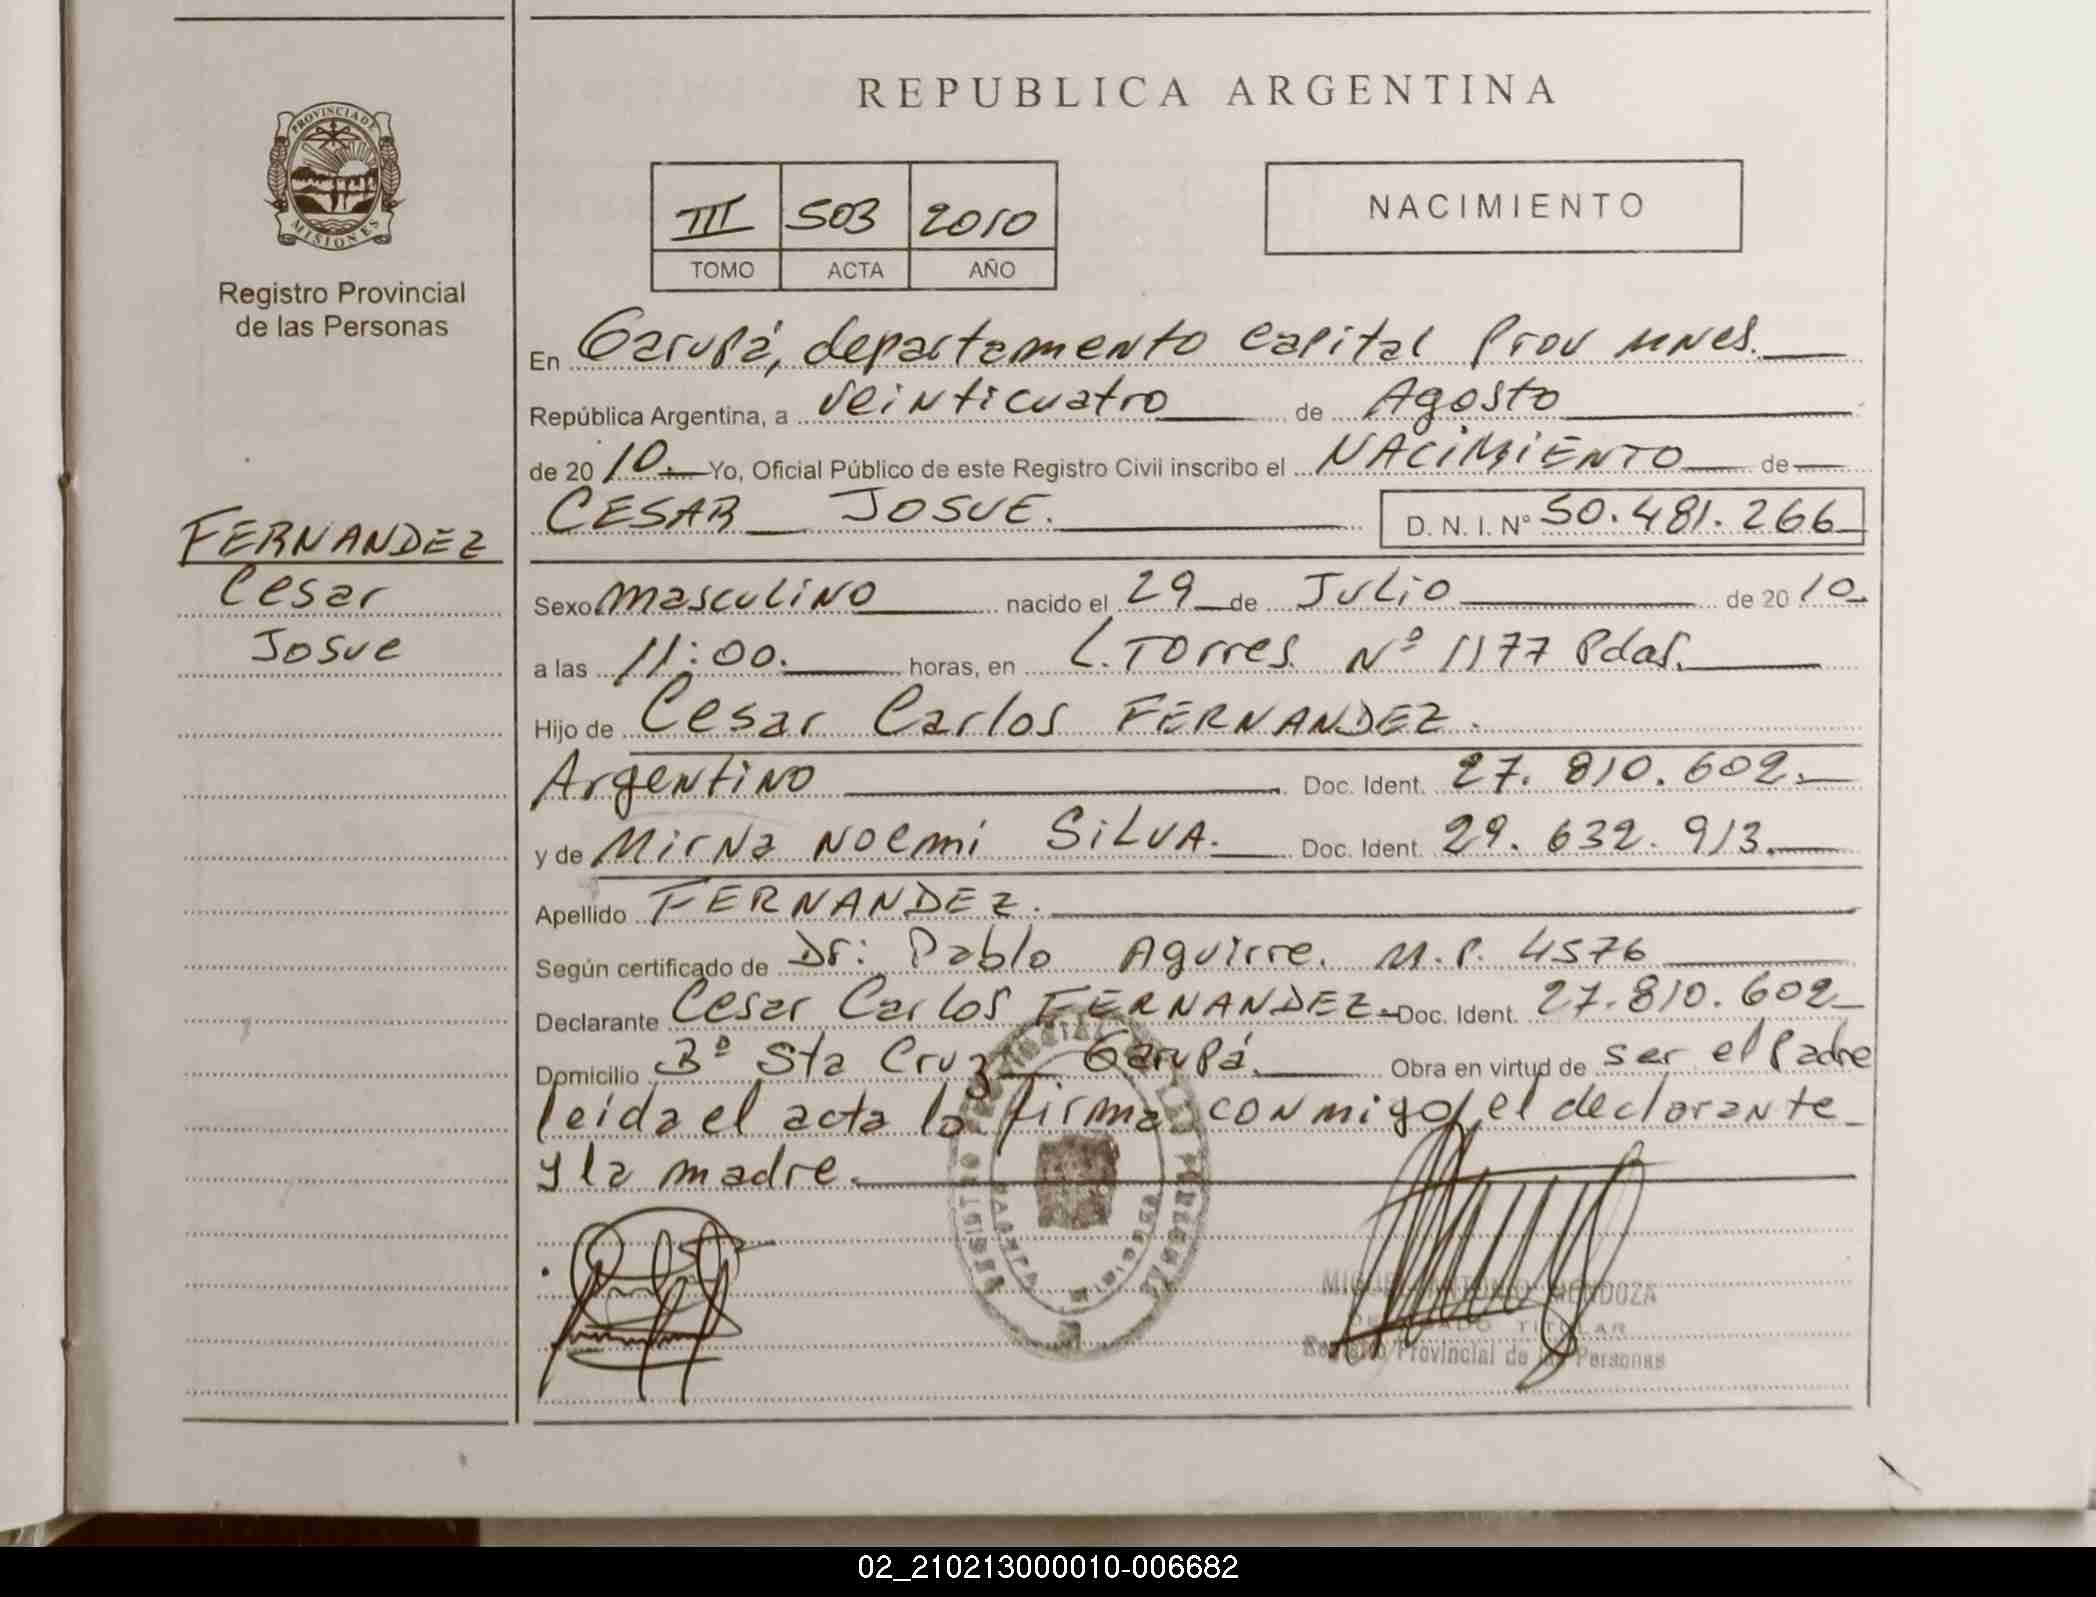 REPUBLICA ARGENTINA
PROVINCIA DE
MISIONES
Registro Provincial
de las Personas
III 503 2010
TOMO ACTA AÑO
NACIMIENTO
En Garupá, departamento Capital Prov Mnes.
República Argentina, a veinticuatro de Agosto
de 20 10. Yo, Oficial Público de este Registro Civil inscribo el NACIMIENTO de
CESAR JOSUE. D. N. I. N° 50.481.266
FERNANDEZ
Cesar
Josue
Sexo masculino nacido el 29 de Julio de 20 10.
a las 11:00. horas, en L. Torres N° 1177 Pdas.
Hijo de Cesar Carlos FERNANDEZ.
Argentino Doc. Ident. 27.810.602.
y de Mirna Noemi SILVA. Doc. Ident. 29.632.913.
Apellido FERNANDEZ.
Según certificado de Dr: Pablo Aguirre. M.P. 4576
Declarante Cesar Carlos FERNANDEZ Doc. Ident. 27.810.602
Domicilio B° Sta Cruz Garupá. Obra en virtud de ser el Padre
leida el acta la firma conmigo, el declarante
y la madre.
MIGUEL ANTONIO MENDOZA
TITULAR
Registro Provincial de las Personas
02_210213000010-006682